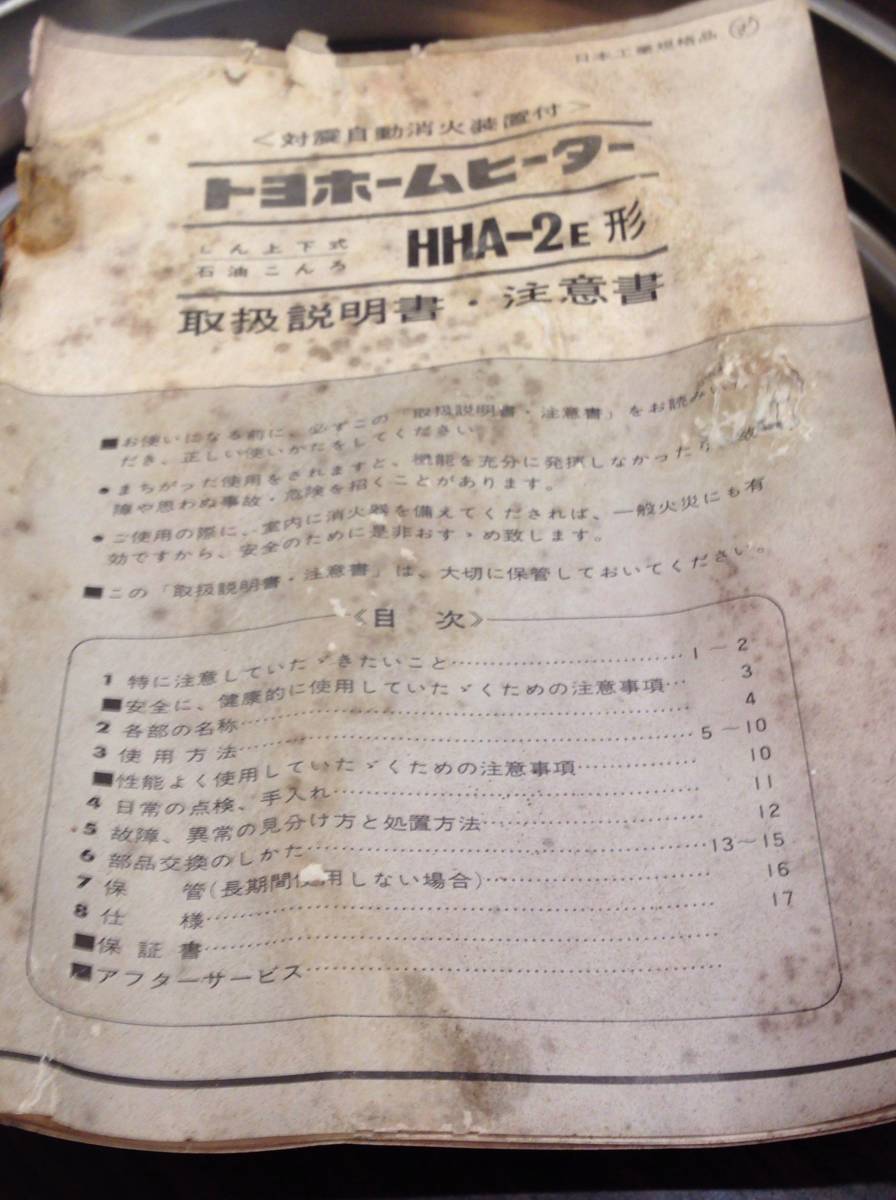 日本工業規格品
<対震自動消火装置付>
トヨホームヒーター
しん上下式
石油こんろ
HHA-2E形
取扱説明書・注意書
■お使いになる前に、必ずこの「取扱説明書・注意書」をお読みい
だき、正しい使いかたをしてください。
●まちがった使用をされますと、機能を充分に発揮しなかったり、故
障や思わぬ事故・危険を招くことがあります。
●ご使用の際に、室内に消火器を備えてくだされば、一般火災にも有
効ですから、安全のために是非おすゝめ致します。
■この「取扱説明書・注意書」は、大切に保管しておいてください。
《目 次》
1 特に注意していたゞきたいこと…………………………1~2
■安全に、健康的に使用していたゞくための注意事項… 3
2 各部の名称………………………………………………… 4
3 使用方法……………………………………………………5~10
■性能よく使用していたゞくための注意事項…………… 10
4 日常の点検、手入れ……………………………………… 11
5 故障、異常の見分け方と処置方法……………………… 12
6 部品交換のしかた…………………………………………13~15
7 保 管(長期間使用しない場合)………………………… 16
8 仕 様……………………………………………………… 17
■保証書………………………………………………………
■アフターサービス…………………………………………